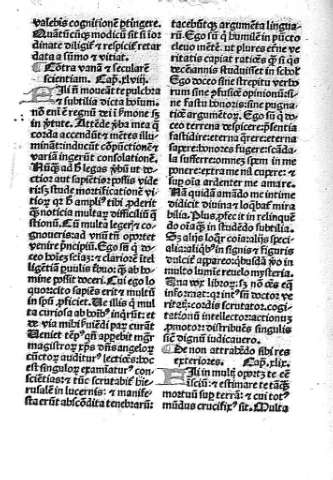 valebis cognitiõe ꝑtingere.
Quãtũcũqꝫ modicũ sit si ior
dinate diligit᷑ & respicit᷑ retar
dat a sũmo & vitiat.
¶ Cõtra vanã & secularẽ
scientiam. Cap. xlviij.
Fili nõ moueãt te pulchra
& subtilia dicta hoĩum.
nõ eni ẽ regnũ dei ĩ ẜmone sꝫ
in ꝟtute. Attẽde ꝟba mea q̃
corda accendũt & mẽtes illu
minãt: inducũt cõpũctionẽ &
variã ingerũt consolationẽ.
Nũqꝫ ad
tior aut sapiẽtior possis vide
ri: sꝫ stude mortificatiõi viti
oꝝ qꝛ h̃ ampliꝰ tibi ꝓderit
q̃ꝫ noticia multaꝝ difficiliũ q̃
stionũ. Cũ multa legeris & co
gnoueris: ad vnũ tñ oportet
venire prĩcipiũ. Ego sũ q do
ceo hoĩes sciãꝫ: & clariorẽ ĩtel
ligẽtiã ꝑuulis tribuo: q̃ꝫ ab ho
mine possit doceri. Cui ego lo
quor cito sapiẽs erit & multũ
in spũ ꝓficiet. Ue illis q̃ mul
ta curiosa ab hoĩbꝰ inqrũt: et
de via mihi ẜuiẽdi parũ curãt
Ueniet tẽpꝰ qñ appebit mgr̃
magistroꝝ xp̃s dñs angeloꝝ
cũctoꝝ auditurꝰ lectiões: hoc
est singuloꝝ examĩaturꝰ con
sciẽtias: & tũc scrutabit᷑ hie
rusalẽ in lucernis: & manife
sta erũt abscõdita tenebrarũ:
tacebũtqꝫ argumẽta lingua
rũ. Ego sũ q humilẽ in pũcto
eleuo mẽtẽ: ut plures eterne
veritatis capiat rationes q̃ꝫ si qs
decẽ annis studuisset in scholis.
Ego doceo sine strepitu verbo
rum sine ꝯfusiõe opinionũ si
ne fastu honoris: sine pugna
tiõe argumẽtoꝝ. Ego sũ q do
ceo terrena
fastidire: eterna q̃rere: eterna
sapere: honores fugere: scãda
la sufferre: omneꝫ spem in me
ponere: extra me nil cupere: &
sup oĩa ardenter me amare.
Nã quidã amãdo me intime
didicit diuina & loqbat᷑ mira
bilia. Plus ꝓfecit in relinquẽ
do oĩa q̃ꝫ in studẽdo subtilia.
Sꝫ alijs loqr cõia: alijs specia
lia: aliqbꝰ in signis & figuris
dulciter appareo: qbusdã ꝟo in
multo lumĩe reuelo mysteria.
Una vox libroꝝ: sꝫ nõ oẽs eq̃
informat: qr intꝰ sũ doctor ve
ritatis: cordis scrutator: cogita
tionũ intellector: actionuꝫ
ꝓmotor: distribuẽs singulis
sic̃ dignũ iudicauero.
¶ De non attrahẽdo sibi res
exteriores. Cap. xlix.
Fili in multꝭ oportꝫ te eẽ
ĩsciũ: & estimare te tãqꝫ
mortuũ sup terrã: & cui totꝰ
mũdus crucifixꝰ sit. Multa